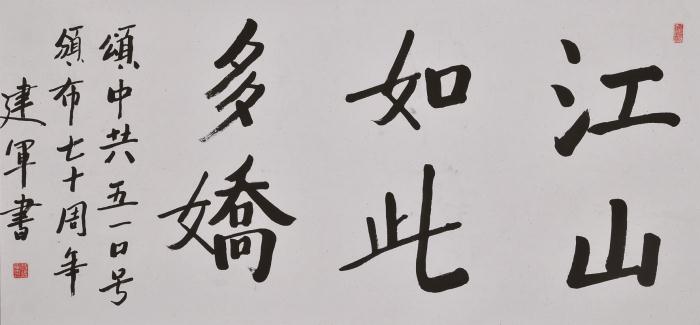 江山
如此
多嬌
頌中共五一口号
頒布七十周年
建軍書